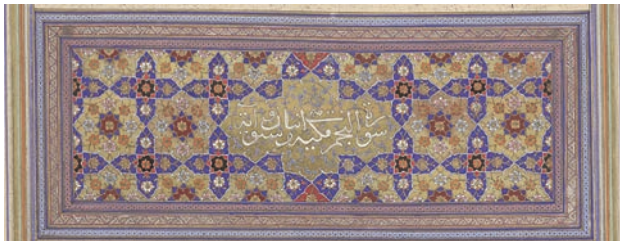 سورة النجم مكيه اثنان وستون آية